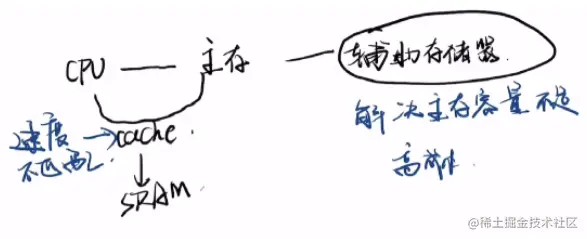 CPU — 主存 — 辅助存储器
速度 → cache
不匹配
↓
SRAM
解决主存容量不足
@稀土掘金技术社区